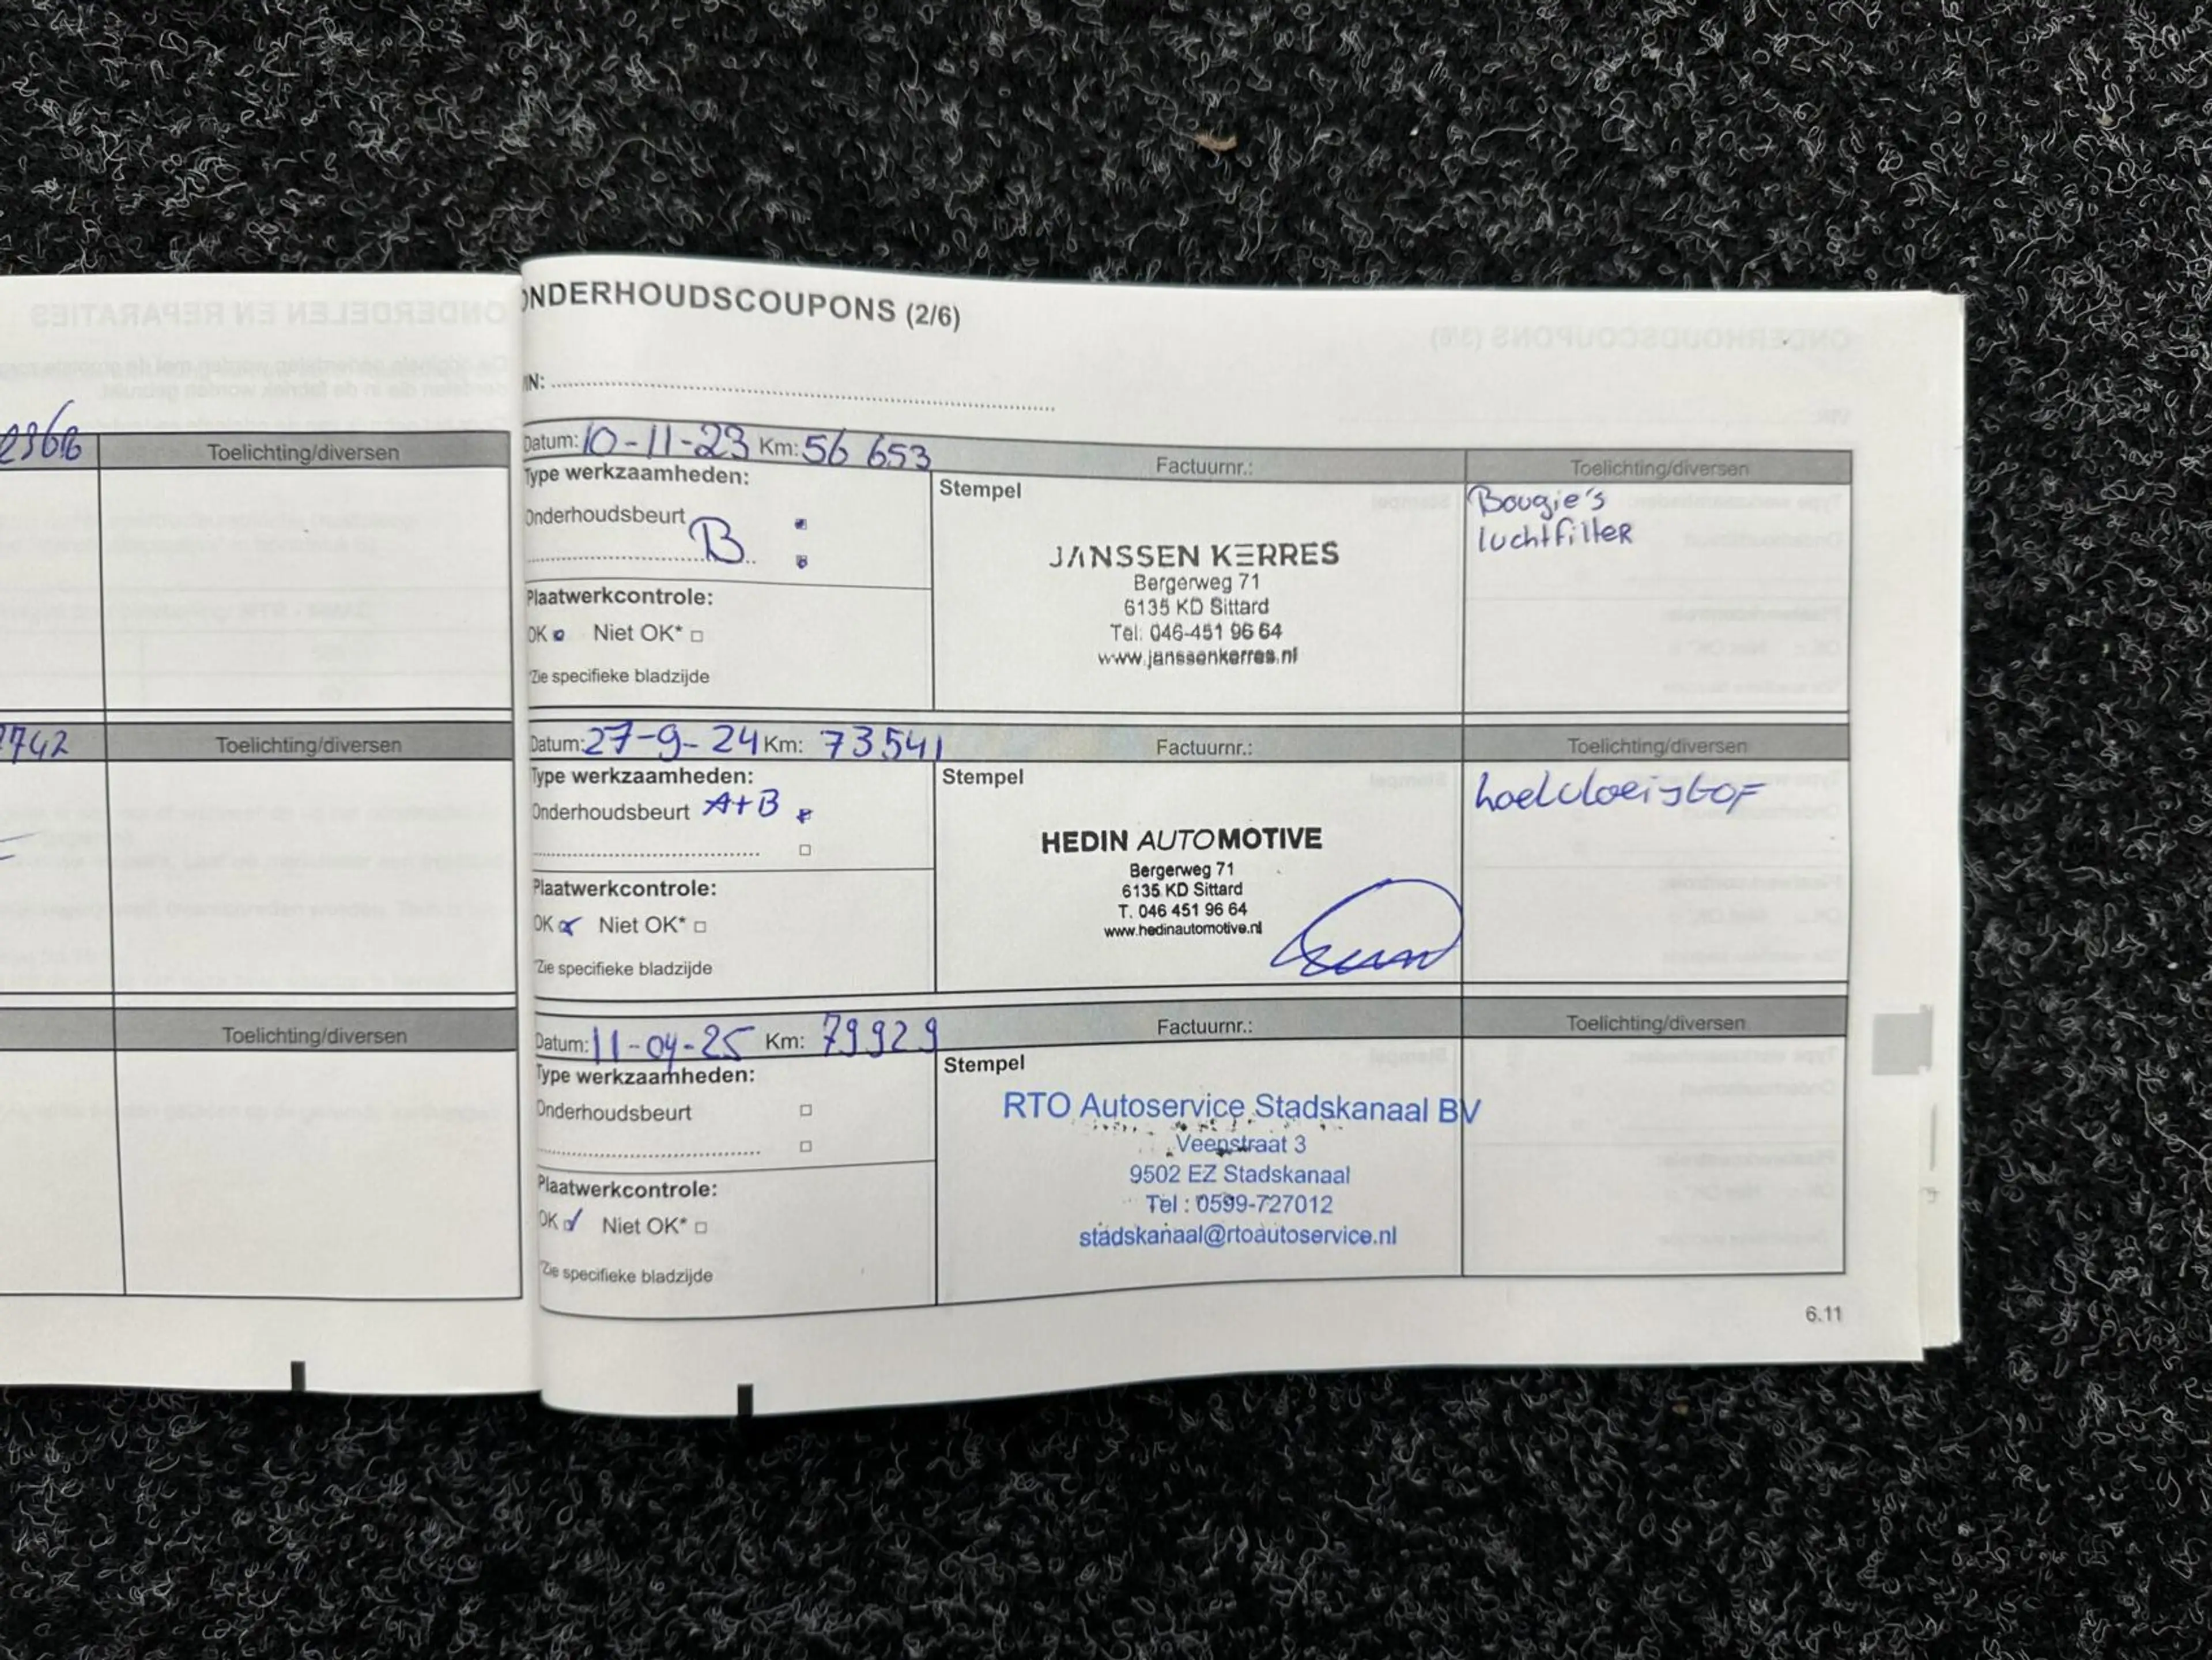 2366
Toelichting/diversen
742
Toelichting/diversen
Toelichting/diversen
ONDERHOUDSCOUPONS (2/6)
IN:
Datum: 10-11-23 Km: 56 653 Factuurnr.: Toelichting/diversen
Type werkzaamheden:
Stempel
Onderhoudsbeurt
B
Bougie's
luchtfilter
JANSSEN KERRES
Bergerweg 71
6135 KD Sittard
Tel: 046-451 96 64
www.janssenkerres.nl
Plaatwerkcontrole:
OK Niet OK*
*Zie specifieke bladzijde
Datum: 27-9-24 Km: 73541 Factuurnr.: Toelichting/diversen
Type werkzaamheden:
Stempel
Onderhoudsbeurt A+B
koelvloeistof
HEDIN AUTOMOTIVE
Bergerweg 71
6135 KD Sittard
T. 046 451 96 64
www.hedinautomotive.nl
Plaatwerkcontrole:
OK Niet OK*
*Zie specifieke bladzijde
Datum: 11-04-25 Km: 79929 Factuurnr.: Toelichting/diversen
Type werkzaamheden:
Stempel
Onderhoudsbeurt
RTO Autoservice Stadskanaal BV
Veenstraat 3
9502 EZ Stadskanaal
Tel : 0599-727012
stadskanaal@rtoautoservice.nl
Plaatwerkcontrole:
OK Niet OK*
*Zie specifieke bladzijde
6.11